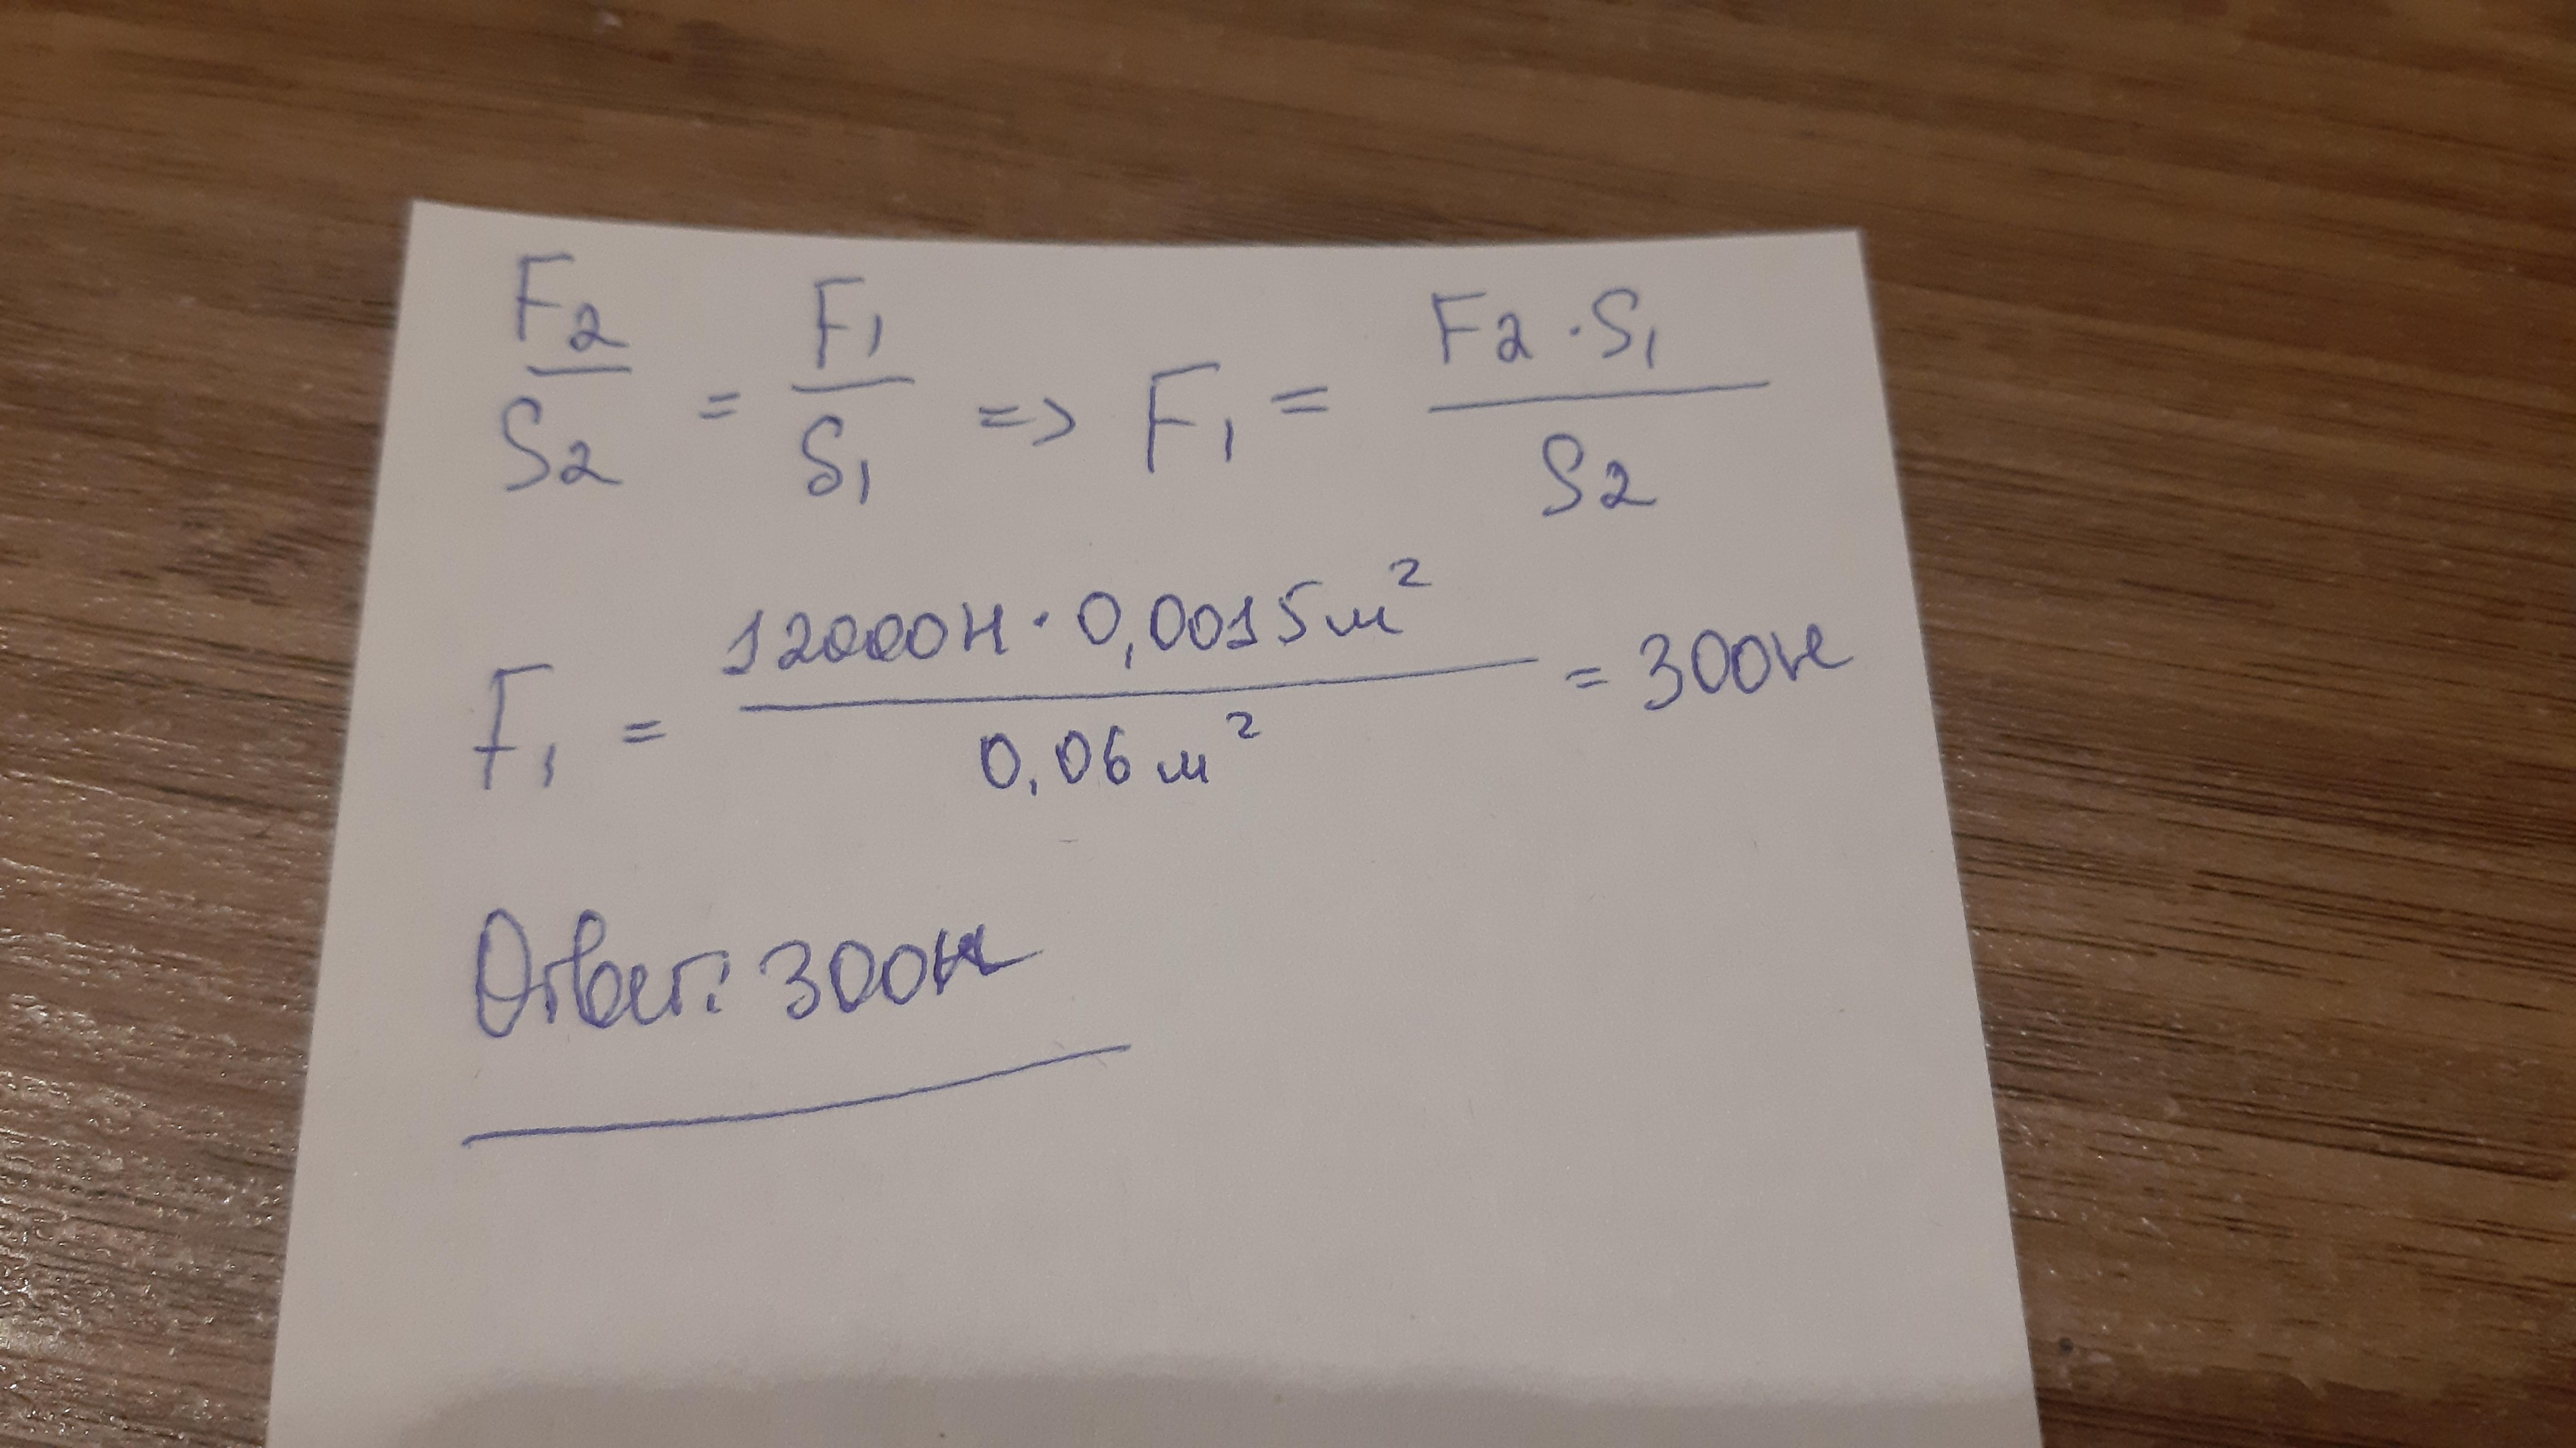 F2/S2 = F1/S1 => F1 = F2·S1/S2
F1 = 12000Н·0,0015м²/0,06м² = 300н
Ответ: 300н